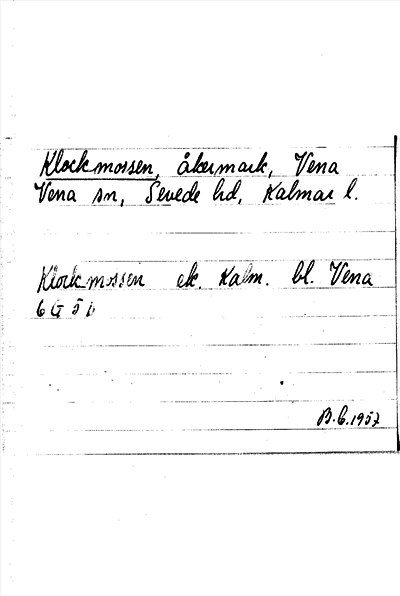 Klockmossen, åkermark, Vena
Vena sn, Sevede hd, Kalmar l.
Klockmossen ek. Kalm. bl. Vena
6 G 5 b
B.C. 1957